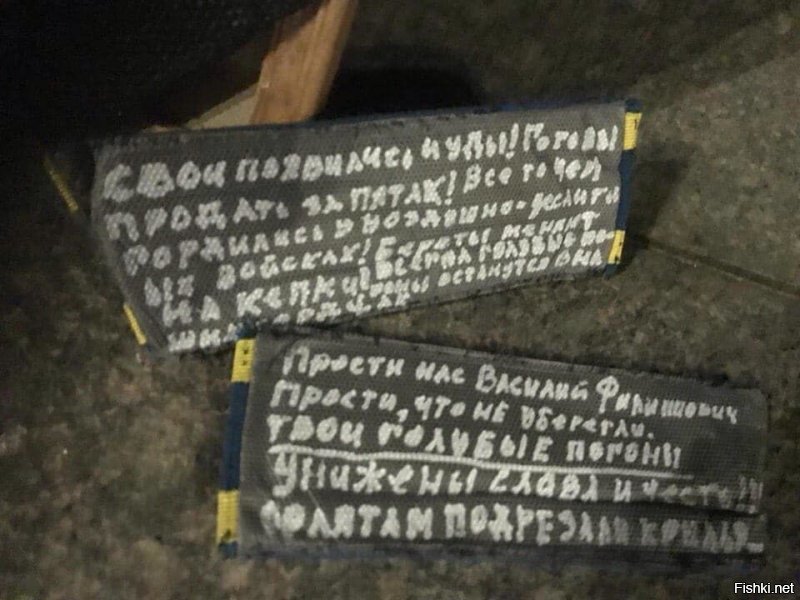 Свои появились иуды! Готовы
продать за пятак! Все то чем
гордились в воздушно-десантн
ых войсках! Береты меняют
на кепки! Всегда голубые по-
гоны останутся в на
ших
Прости нас Василий Филиппович
Прости, что не уберегли.
твои голубые погоны
Унижены слава и честь!!!
Солдатам подрезали крылья
Fishki.net